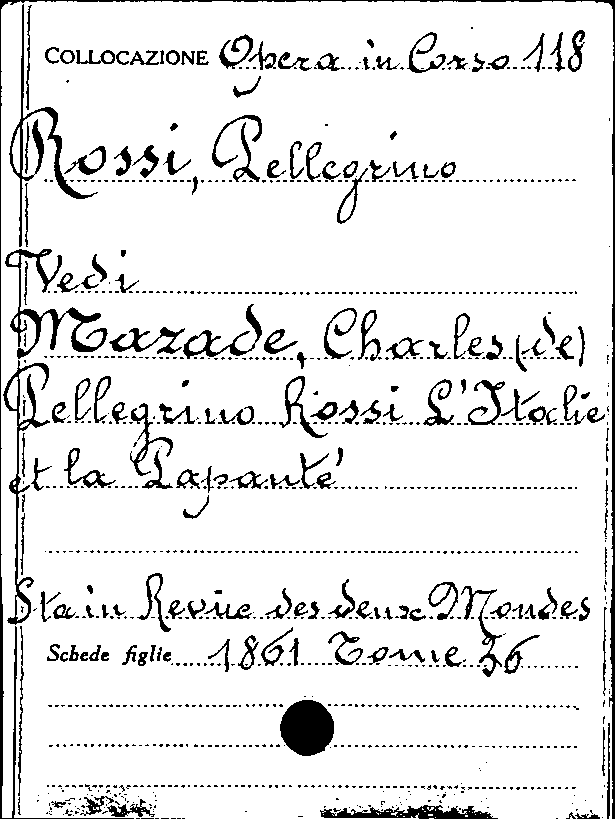 COLLOCAZIONE Opera in Corso 118
Rossi, Pellegrino
Vedi
Mazade, Charles (de)
Pellegrino Rossi L'Italie
et la Papauté
Sta in Revue des deux Mondes
Schede figlie 1861 Tome 36